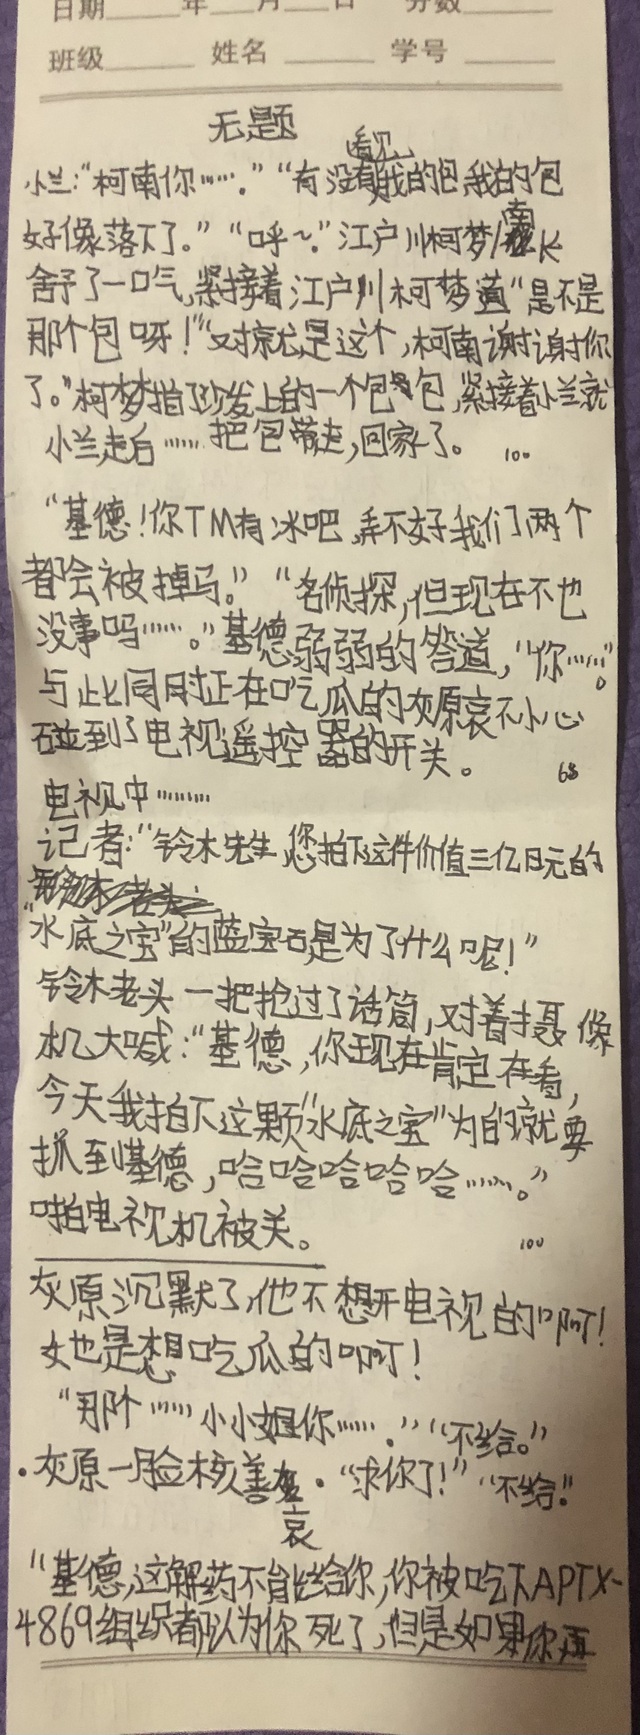 日期 年 月 日 分数
班级 姓名 学号
无题
看见
小兰:“柯南你……。”“有没有我的包,我的包
南
好像落下了。”“呼~。”江户川柯梦/ 长
舒了一口气,紧接着江户川柯梦道“是不是
那个包呀!”“对就是这个,柯南谢谢你
了。”柯梦指了沙发上的一个包包,紧接着小兰就
小兰走后……把包带走,回家了。 100
“基德!你TM有冰吧,弄不好我们两个
都会被掉马。”“名侦探,但现在不也
没事吗……。”基德弱弱的答道,“你……。”
与此同时正在吃瓜的灰原哀不小心
碰到了电视遥控器的开关。 68
电视中………
记者:“铃木先生,您拍下这件价值三亿日元的
“水底之宝”的蓝宝石是为了什么呢!”
铃木老头一把抢过了话筒,对着摄像
机大喊:“基德,你现在肯定在看,
今天我拍下这颗“水底之宝”为的就要
抓到基德,哈哈哈哈哈……。”
啪电视机被关。 100
灰原沉默了,他不想开电视的啊!
她也是想吃瓜的啊!
“那个……小小姐你……。”“不给。”
·灰原一脸核善 。“求你了!”“不给.”
哀
“基德,这解药不能给你,你被吃下APTX-
4869组织都认为你死了,但是如果你再